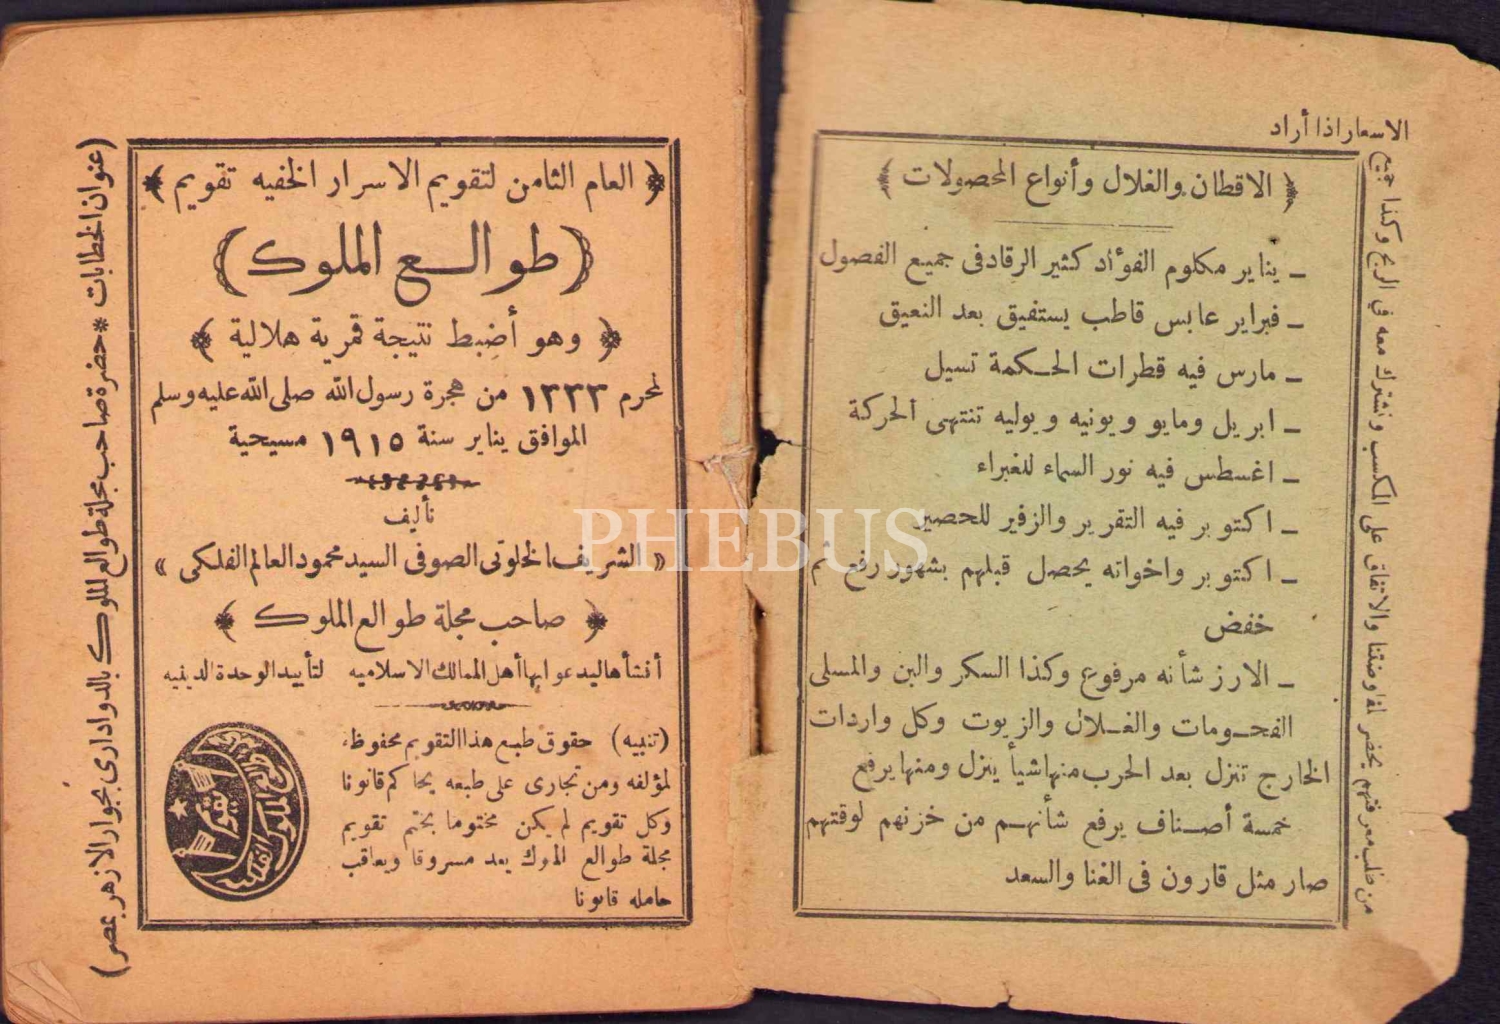 الاسعار اذا أراد
الاقطان والغلال وأنواع المحصولات
ــ يناير مكلوم الفؤاد كثير الرقاد فى جميع الفصول
ــ فبراير عابس قاطب يستفيق بعد النعيق
ــ مارس فيه قطرات الحكمة تسيل
ــ ابريل ومايو ويونيه ويوليه تنتهى الحركة
ــ اغسطس فيه نور السماء للغبراء
ــ اكتوبر فيه التقرير والزفير للحصير
ــ اكتوبر واخواته يحصل قبلهم بشهور رفع ثم
خفض
ــ الارز شأنه مرفوع وكذا السكر والبن والمسلى
الفحومات والغلال والزيوت وكل واردات
الخارج تنزل بعد الحرب منها شيأ ينزل ومنها يرفع
خمسة أصناف يرفع شأنهم من خزنهم لوقتهم
صار مثل قارون فى الغنا والسعد
من طلب معرفتهم يحضر لمفاوضتنا والاتفاق على المكسب ونشترك معه في الربح وكذا جميع
العام الثامن لتقويم الاسرار الخفيه تقويم
(طوالع الملوك)
وهو أضبط نتيجة قمرية هلالية
لمحرم ١٣٣٣ من هجرة رسول الله صلى الله عليه وسلم
الموافق يناير سنة ١٩١٥ مسيحية
تأليف
« الشريف الخلوتى الصوفى السيد محمود العالم الفلكى »
صاحب مجلة طوالع الملوك
أنشأها ليدعو ابها أهل الممالك الاسلاميه لتأييد الوحدة الدينيه
(تنبيه) حقوق طبع هذا التقويم محفوظه
لمؤلفه ومن تجارى على طبعه يحاكم قانونا
وكل تقويم لم يكن مختوما بختم تقويم
مجلة طوالع الملوك يعد مسروقا ويعاقب
حامله قانونا
(عنوان الخطابات * حضرة صاحب مجلة طوالع الملوك بالدوادارى بجوار الازهر بمصر)
PHEBUS